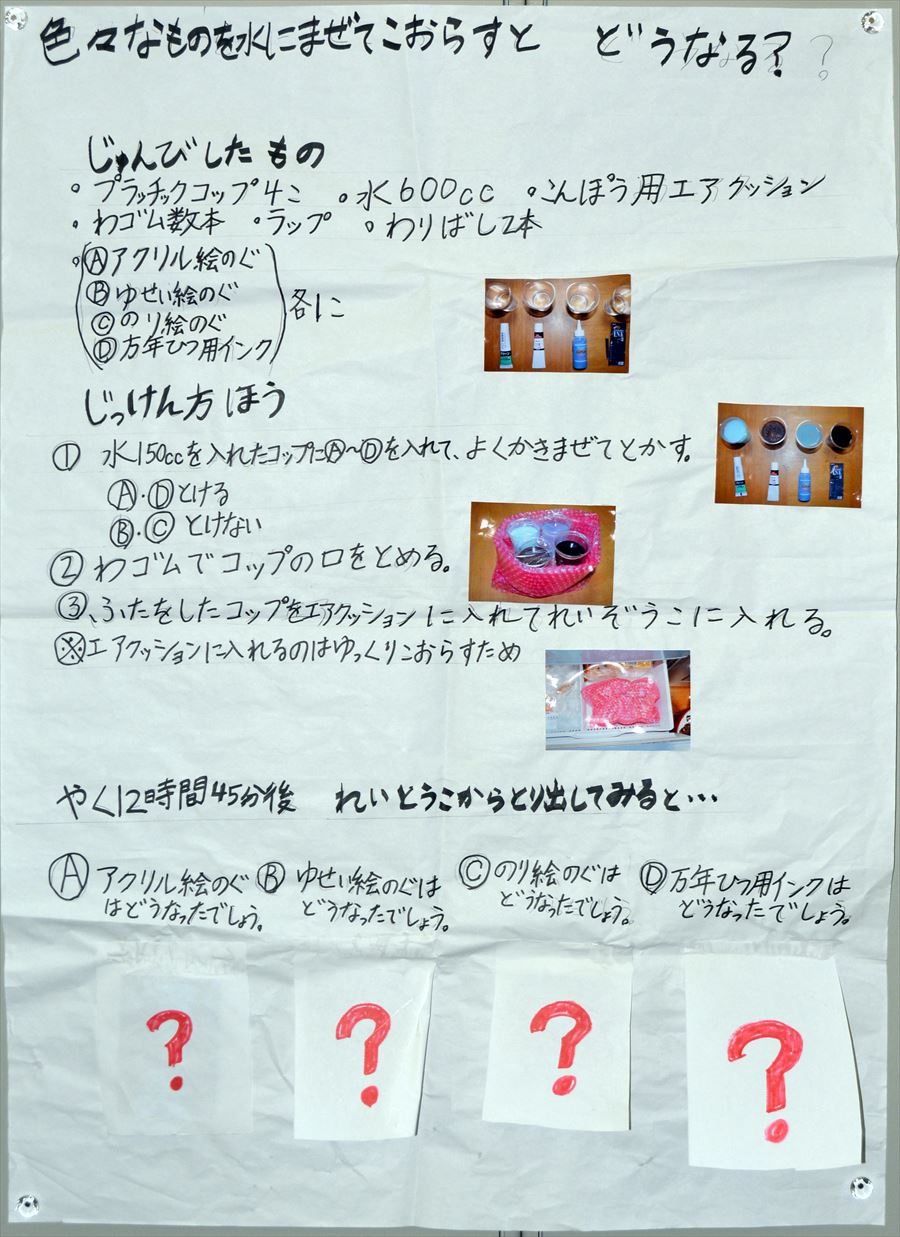 色々なものを水にまぜてこおらすと どうなる?
じゅんびしたもの
・プラッチックコップ4こ ・水600cc ・こんぽう用エアクッション
・わゴム数本 ・ラップ ・わりばし2本
・Ⓐアクリル絵のぐ
Ⓑゆせい絵のぐ
Ⓒのり絵のぐ
Ⓓ万年ひつ用インク
各1こ
じっけん方ほう
① 水150ccを入れたコップにⒶ〜Ⓓを入れて、よくかきまぜてとかす。
Ⓐ・Ⓓとける
Ⓑ・Ⓒとけない
②わゴムでコップの口をとめる。
③、ふたをしたコップをエアクッションに入れてれいぞうこに入れる。
※エアクッションに入れるのはゆっくりこおらすため
やく12時間45分後 れいとうこからとり出してみると…
Ⓐ アクリル絵のぐ
はどうなったでしょう。
Ⓑ ゆせい絵のぐは
どうなったでしょう。
Ⓒ のり絵のぐは
どうなったでしょう。
Ⓓ 万年ひつ用インクは
どうなったでしょう。
? ? ? ?